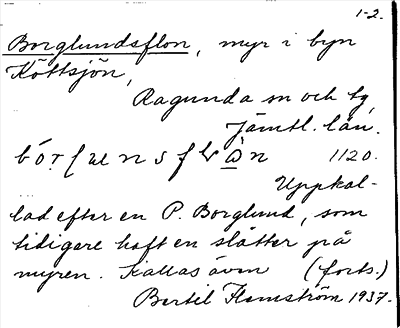 1-2.
Borglundsflon, myr i byn
Köttsjön,
Ragunda sn och tg,
Jämtl. län.
1120.
Uppkal-
lad efter en P. Borglund, som
tidigare haft en slåtter på
myren. Kallas även (forts.)
Bertil Flemström 1937.